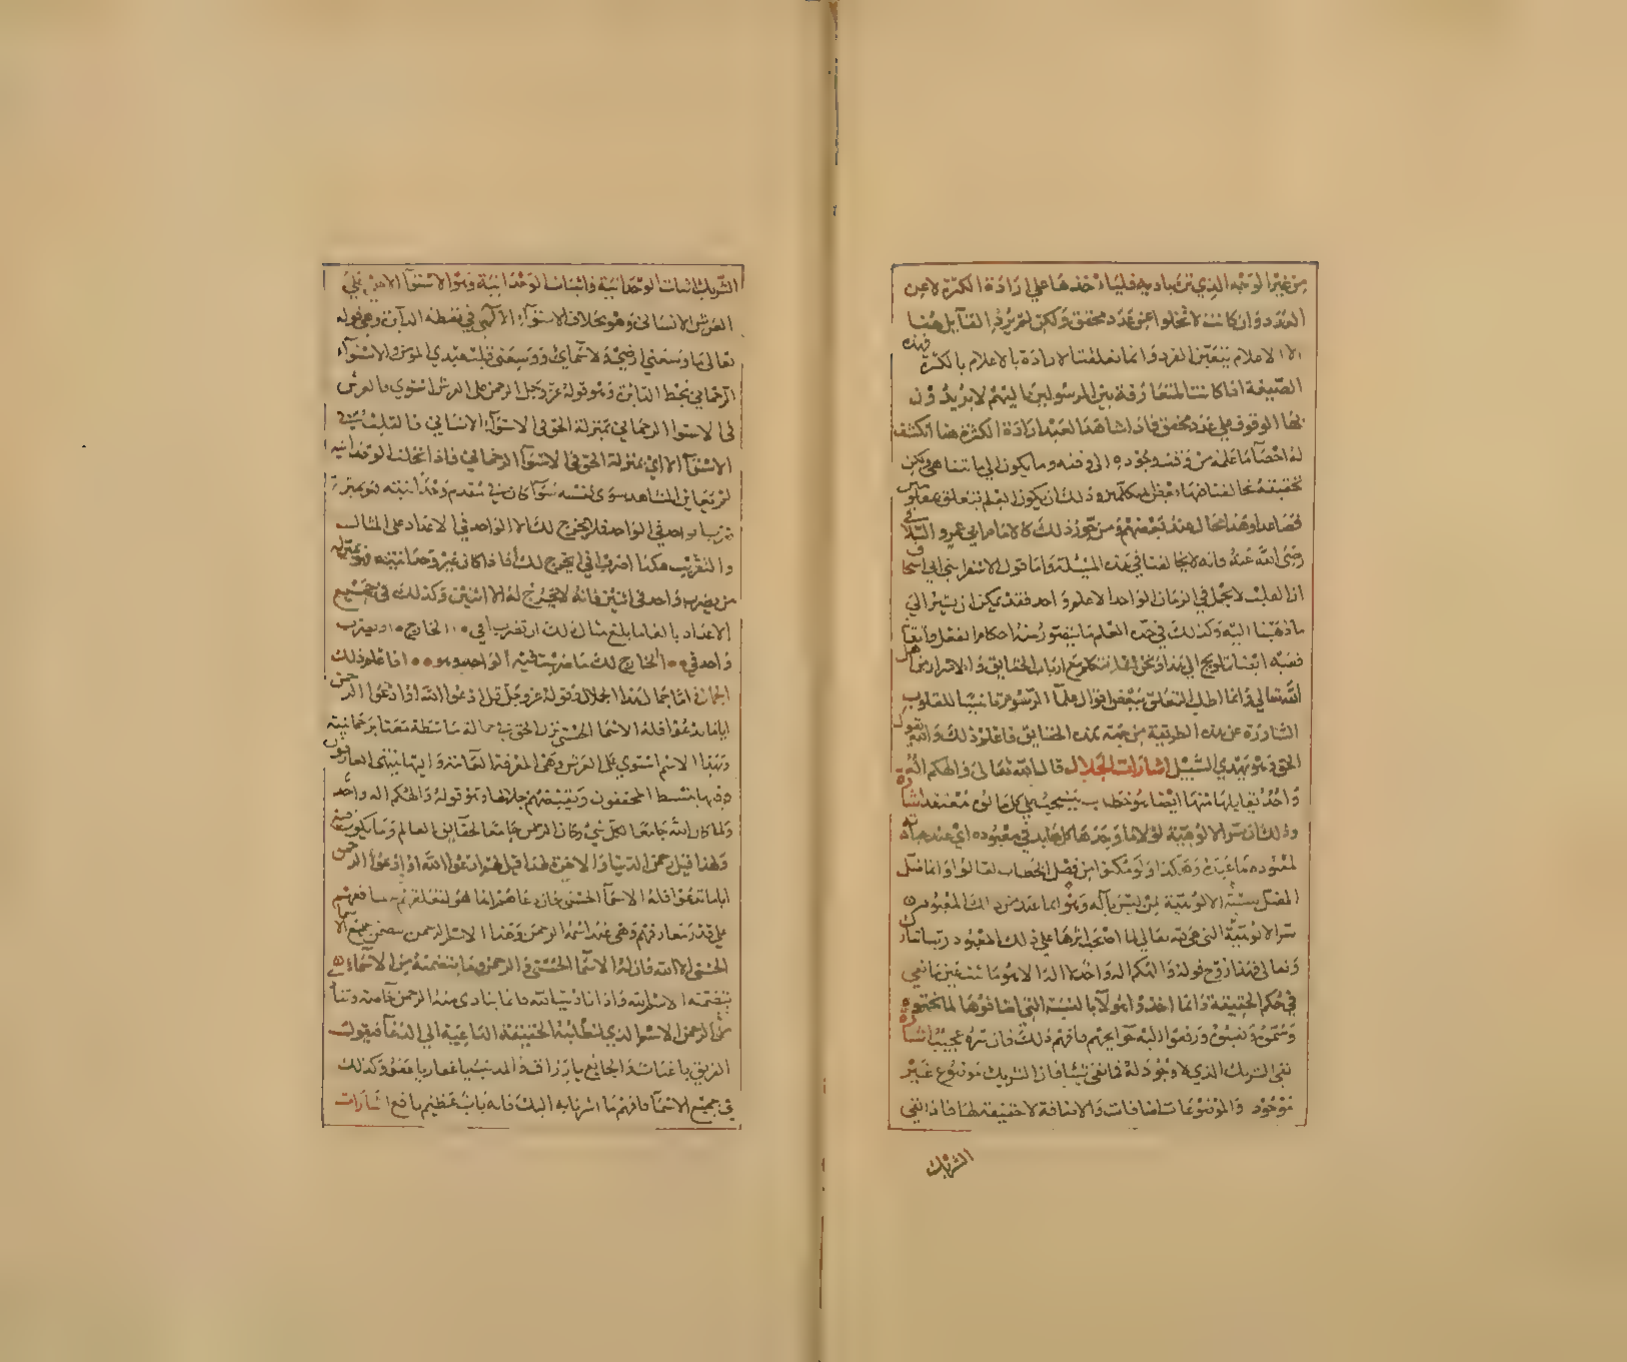 من غير الوجه الذي ترى بادبه فليأخذها علي ارادة الكثرة لا عن
العدد وان كانت لا تخلوا عن عدد محقق ولكن لم يرد القائل هنا
الاعلام بتعين الفرد وانما تعلقت الارادة بالاعلام بالكثرة فهذه
الصيغة اذا كانت المتعارفة بين المرسولين اليهم لا يريدون
بها الوقوف على عدد محقق فاذا شاهد العبد ارادة الكثرة هنا انكشف
له احصا ما علمه من وقت وجوده الى وقته وما يكون الى ما يتناهى ولكن
تحقيقه مخالفنا فيها بعض المتكلمين وذلك ان يكون العلم يتعلق بمعلومين
فصاعدا وهذا محال عند بعضهم ومن جوز ذلك كالامام ابي عمرو السلالجي
رضى الله عنه فانه لا يخالفنا في هذه المسئلة واما قول الاسفرايني ابي اسحاق
ان القلب لا يحمل في الزمان الواحد الا علم واحد فقد يمكن ان يشير الي
ما ذهبنا اليه وكذلك في حد العلم ما يتصور منه احكام الفعل واتقا
فعبه ايضا تلويح الي هذا ونحن انما نتكلم مع ارباب الحقايق والاسرار من اهل
الله تعالي وانما اطلب التعلق ببعض اقوال علما الرسوم تانيسا للقلوب
الشاردة عن هذه الطريقة من جهة هذه الحقايق فاعلم ذلك والله يقول
الحق وهو يهدي السبيل اشارات الجلال قال الله تعالى والهكم اله
واحد تقابلها منها ايضا هو خطاب يسحب على كل مالوه معتقد اشارة
وذلك ان سر الالوهية لولاها وجدها كل عابد في معبوده اي عند عبادته
لمعبوده ما عبده وهكذا ولو مكنوا من فصل الخطاب لقالوا وانما ضل
المضل بنسبة الالوهية لمن ليس باله وهو انما عبد من ذلك المعبود
سر الالوهية التي هي لله تعالى لما اصحب اثرها علي ذلك المعبود ربنا تبارك
وتعالى فهذا روح قوله والهكم اله واحد لا اله الا هو ما ثبت عين ما نفي
في حكم الحقيقة وانما اخذوا هولآ بالنسبة التي اضافوها لما نحتوه
وسموه ولعبوه ورفعوا اليه حوايجهم فافهم ذلك فانه سره عجيب اشارة
نفي الشريك الذي لا وجود له فما نفى شيئا فان الشريك موضوع غير
موجود والموضوعات اضافات والاضافة لا حقيقة لها فاذا نفي
الشريك
الشريك اثبات الوحدانية فاثبات الوحدانية وهو الاستوآ الالهي على
العرش الانساني وهو بخلاف الاستوآ الالهي في نقطة الدآئرة وهي قوله
تعالى ما وسعني ارضي ولا سمائي ووسعني قلب عبدي المومن والاستوآ
الرحماني بمحيط الدائرة وهو قوله عز وجل الرحمن على العرش استوي فالعرش
في الاستوا الرحماني بمنزلة الحق في الاستوآ الانساني فالقلب في
الاستوآ الالهي بمنزلة الحق في الاستوآ الرحماني فاذا انجلت الوحدانيه
لم تعاين المشاهد سوى نفسه سوآ كان في مقدم وحدانيته فهو بمنزلة
ضرب الواحد في الواحد فلا يخرج لك الا الواحد في الاعداد على المثال
والتقريب هكذا اضرب ا في ا يخرج لك ا فاذا كان غير وحدانيته فهو بمنزله
من يضرب واحد في اثنين فانه لا يخرج له الا اثنين وكذلك في جميع
الاعداد بالغا ما بلغ مثال ذلك ان تضرب ا في ١٠٠ الخارج ١٠٠ او تضرب
واحد في ١٠٠ الخارج لك ما ضربته فيه الواحد وهو ١٠٠ فاعلم ذلك
الجمال في امّا جمال هذا الجلال فقوله عز وجل قل ادعوا الله او ادعوا الرحمن
اياما تدعوا فله الاسما الحسنى نزل الحق في جماله مباسطة معنا برحمانيته
وبهذا الاسم استوي على العرش وهي المعرفة العامة واليها ينتهي العارفون
وفيها ينبسط المحققون ويقبضهم جلالها وهو قوله والهكم اله واحد
ولما كان الله جامعا لكل شيء وكان الرحمن جامعا لحقايق العالم وما يكون
ولهذا قيل رحمن الدنيا والاخرة لهذا قيل لهم ادعوا الله او ادعوا الرحمن
اياما تدعوا فله الاسمآ الحسنى فان دعاهم انما هو لتعلقهم به منافعهم
علي قدر معارفهم وهي عند اسمه الرحمن وهذا الاسم الرحمن يتضمن جميع الاسما
الحسنى الا الله فان له الاسمآ الحسنى والرحمن وما يتضمنه من الاسماء
يتضمنه الاسم الله واذا ناديت الله فانما ينادى منه الرحمن خاصة وتنا
من الرحمن الاسم الذي تطلبه الحقيقة الداعية الي الدعآ فيقول
الغريق يا غياث والجائع يا رزاق والمذنب يا غفار يا عفو وكذلك
في جميع الاسمآ فافهم ما اشرنا به اليك فانه باب عظيم نافع اشارات